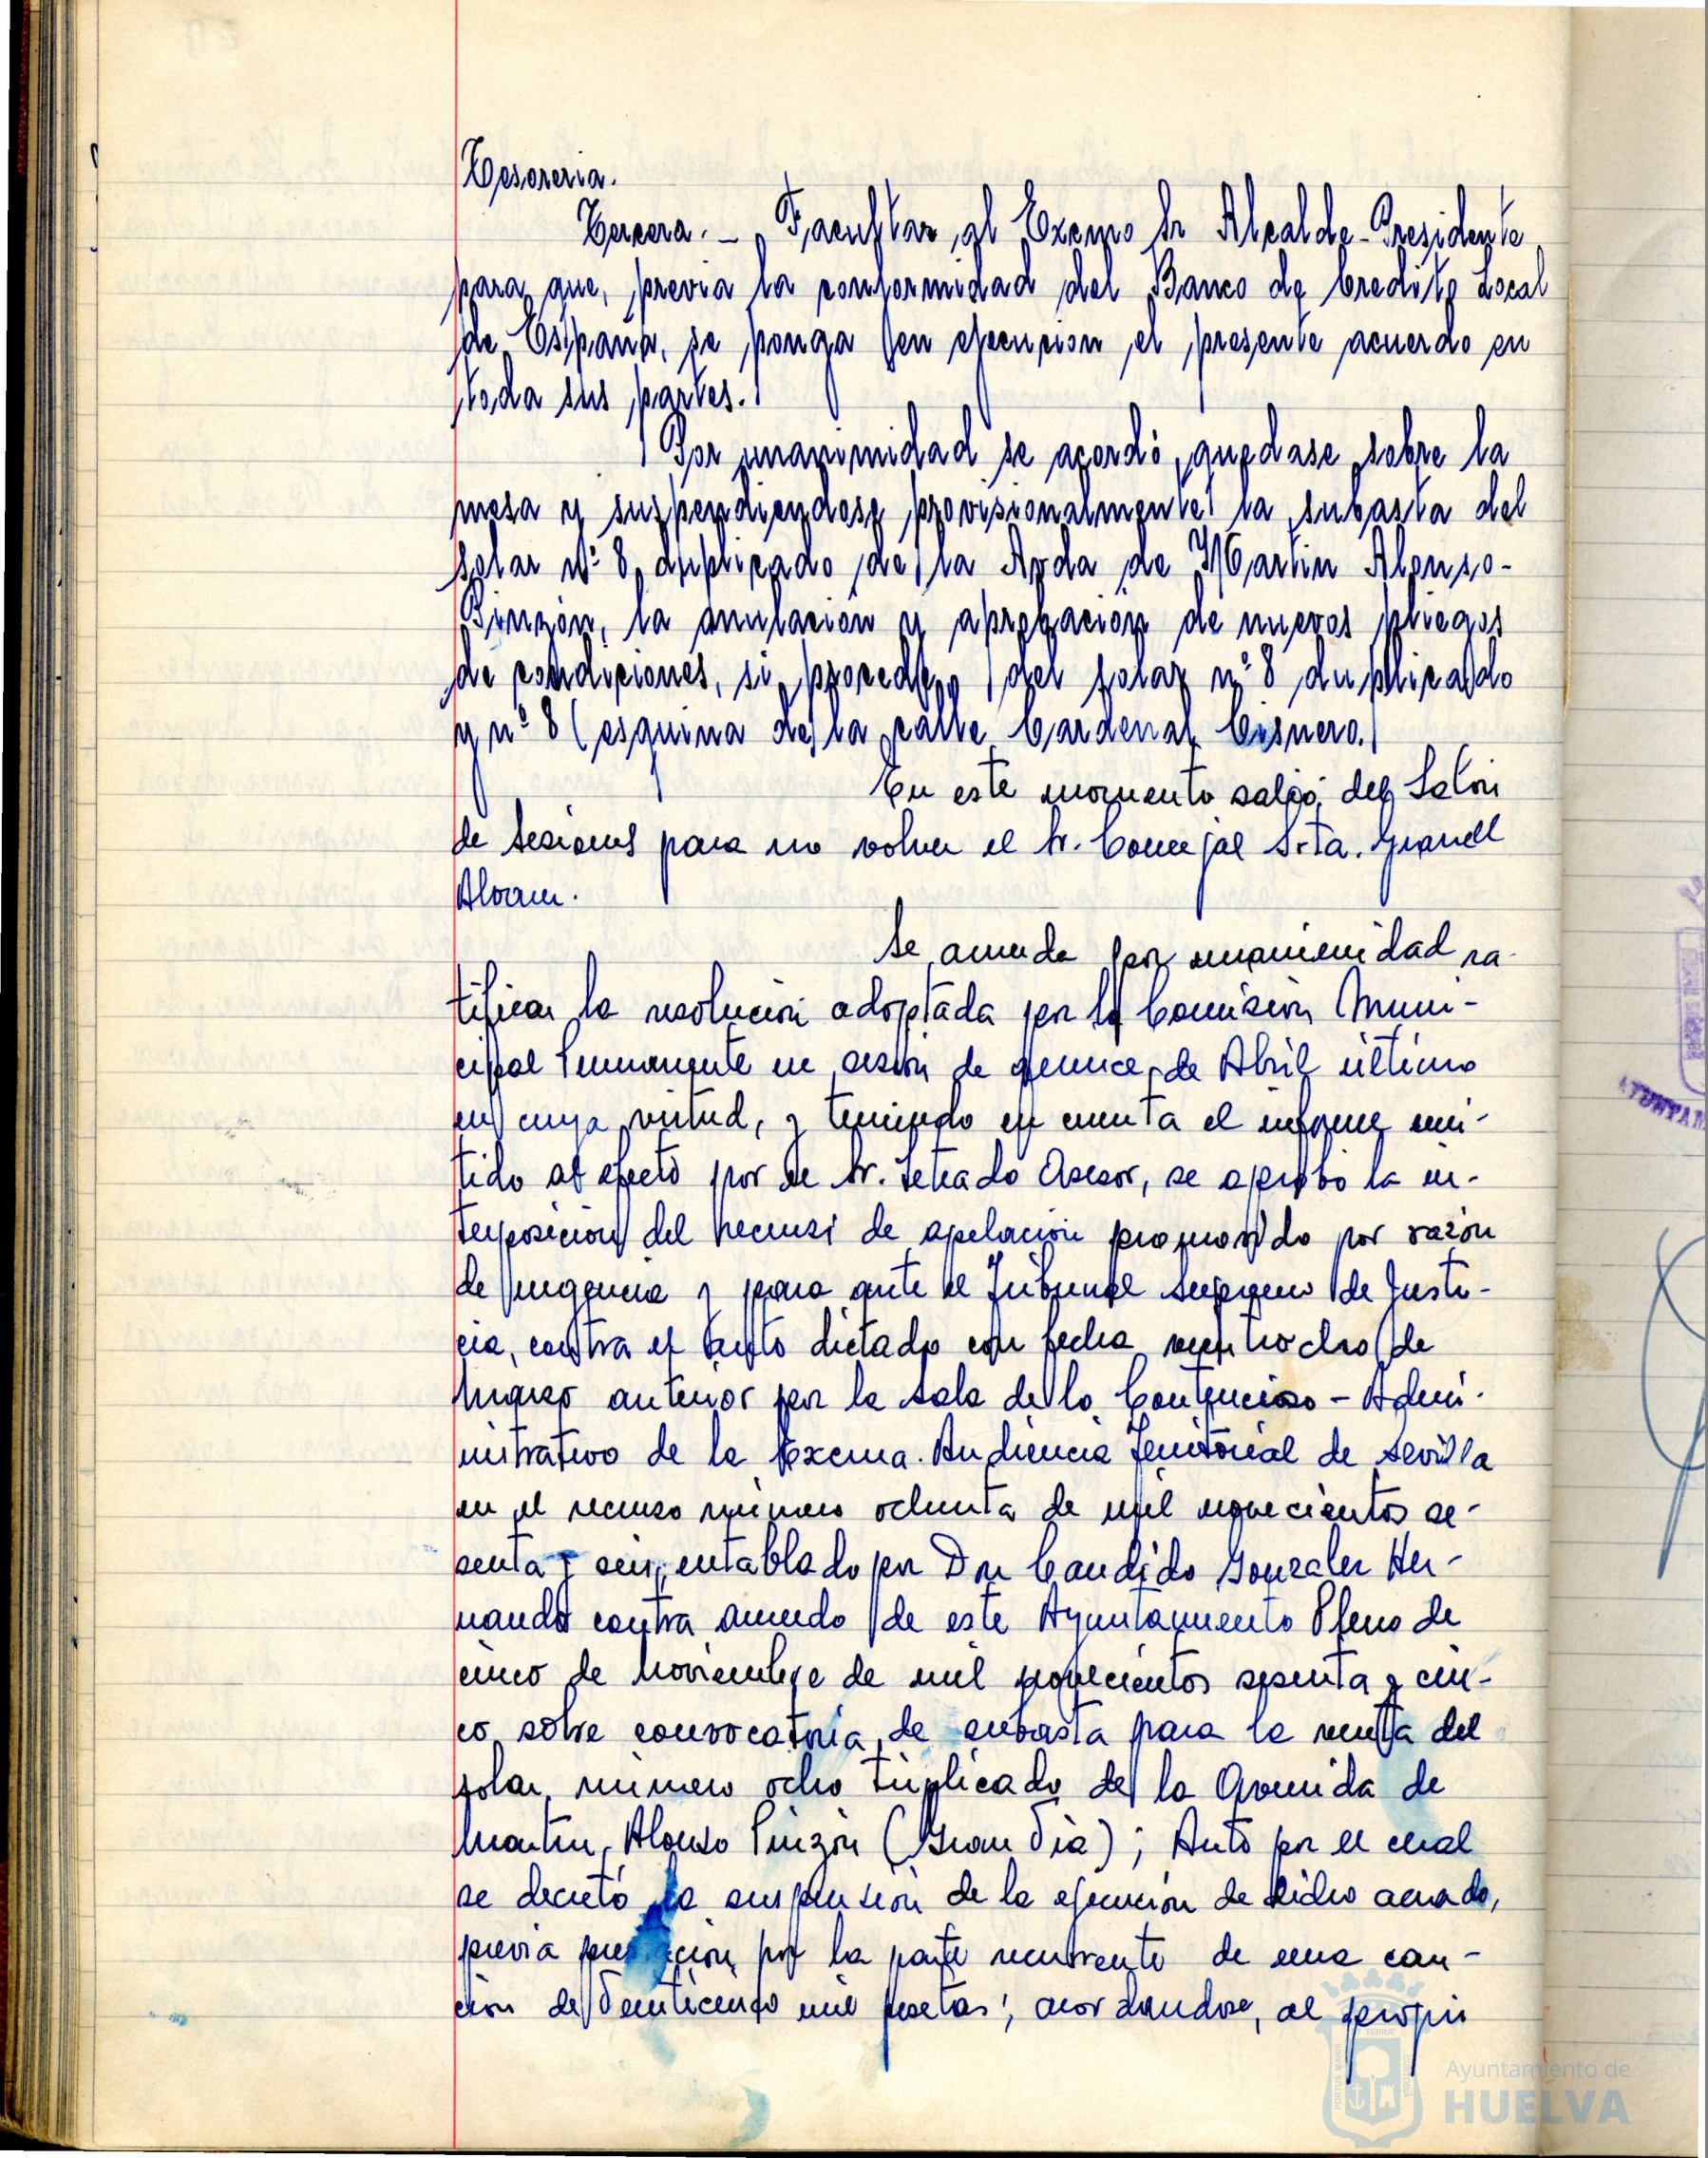 Tesoreria.
Tercera. - Facultar al Excmo Sr Alcalde-Presidente
para que, previa la conformidad del Banco de Credito Local
de España, se ponga en ejecucion el presente acuerdo en
toda sus partes.
Por unanimidad se acordó, quedase sobre la
mesa y suspendiendose provisionalmente la subasta del
solar nº 8 duplicado de la Avda de Martin Alonso-
Pinzón, la anulación y aprobación de nuevos pliegos
de condiciones, si procede, del solar nº 8 duplicado
y nº 8 (esquina de la calle Cardenal Cisnero.)
En este momento salió del Salón
de Sesiones para no volver el Sr. Concejal Srta. Granell
Alvarez.
Se acuerda por unanimidad ra-
tificar la resolución adoptada por la Comisión Muni-
cipal Permanente en sesión de quince de Abril último
en cuya virtud, y teniendo en cuenta el informe emi-
tido al efecto por el Sr. Letrado Asesor, se aprobó la in-
terposición del recurso de apelación promovido por razón
de urgencia y para ante el Tribunal Supremo de Justi-
cia, contra el auto dictado con fecha veintiocho de
Marzo anterior por la Sala de lo Contencioso - Admi-
nistrativo de la Excma. Audiencia Territorial de Sevilla
en el recurso número ochenta de mil novecientos se-
senta y seis, entablado por Don Candido Gonzalez Her-
nando contra acuerdo de este Ayuntamiento Pleno de
cinco de Noviembre de mil novecientos sesenta y cin-
co, sobre convocatoria de subasta para la venta del
solar número ocho triplicado de la Avenida de
Martin Alonso Pinzón (Gran Via); Auto por el cual
se decretó la suspensión de la ejecución de dicho acuerdo,
previa prestación por la parte recurrente de una cau-
ción de Veinticinco mil pesetas; acordandose, al propio
Ayuntamiento de
HUELVA